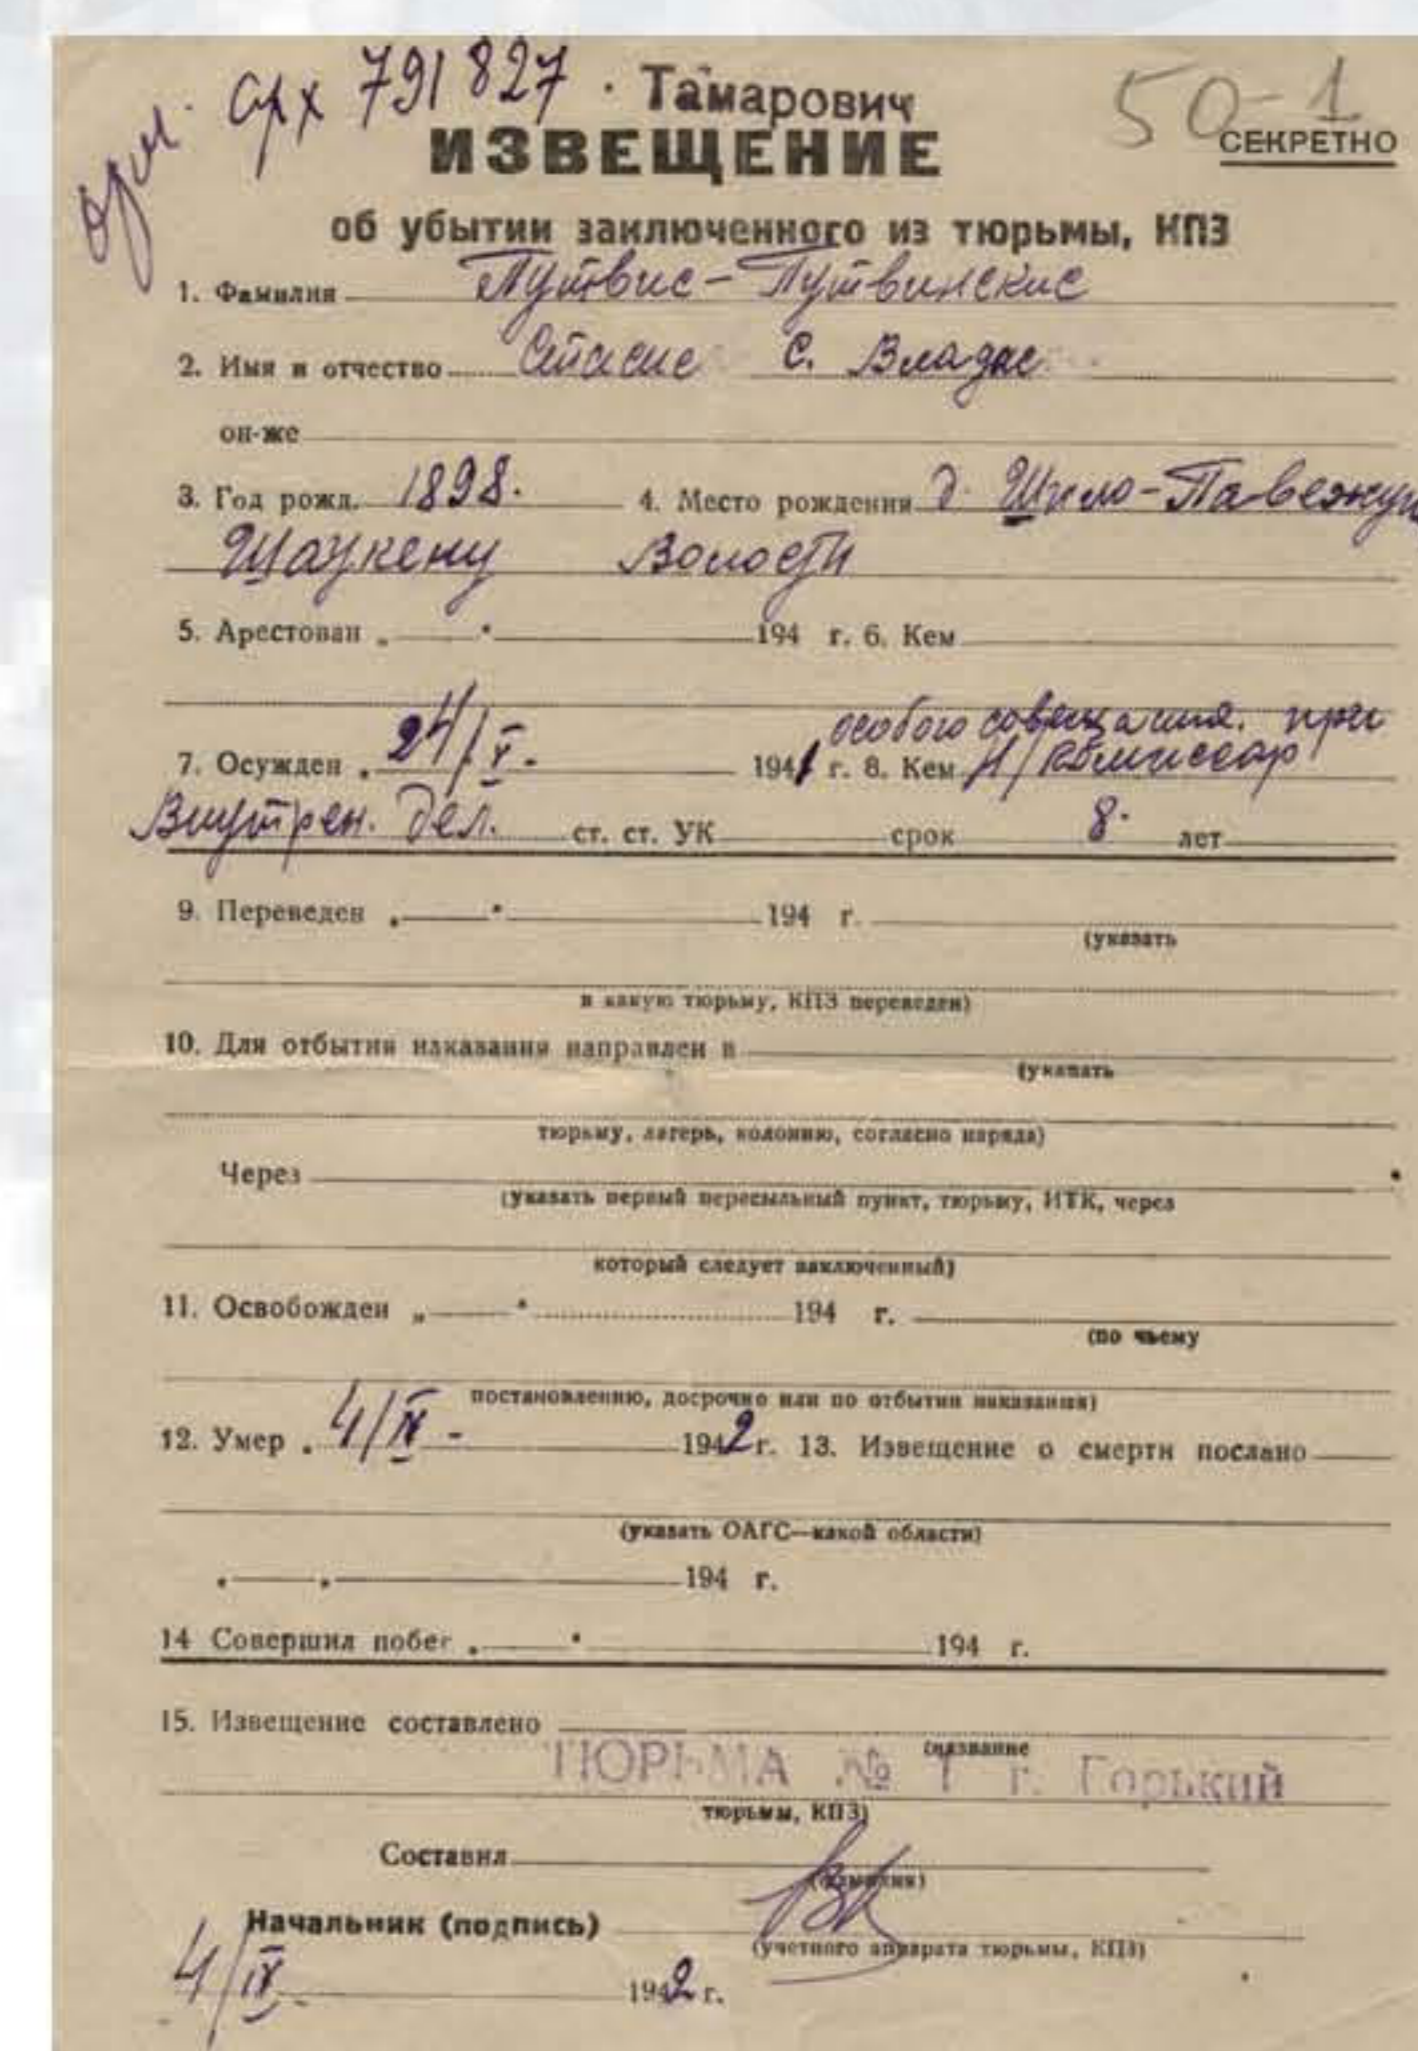 арх 791827. Тамарович
50-1
ИЗВЕЩЕНИЕ
СЕКРЕТНО
об убытии заключенного из тюрьмы, КПЗ
1. Фамилия Путвис-Путвинскис
2. Имя и отчество Стасис С. Владас
он-же
3. Год рожд. 1898. 4. Место рождения д. Шило-Павежуп
Шаукену Волости
5. Арестован „ " 194 г. 6. Кем
особого совещания. при
7. Осужден „ 24/V- 1941 г. 8. Кем Н/Комиссар
Внутрен. дел. ст. ст. УК срок 8. лет
9. Переведен „ " 194 г.
(указать
в какую тюрьму, КПЗ переведен)
10. Для отбытия наказания направлен в
(указать
тюрьму, лагерь, колонию, согласно наряда)
Через
(указать первый пересыльный пункт, тюрьму, ИТК, через
который следует заключенный)
11. Освобожден „ " 194 г.
(по чьему
постановлению, досрочно или по отбытии наказания)
12. Умер „ 4/IV - 1942 г. 13. Извещение о смерти послано
(указать ОАГС—какой области)
„ " 194 г.
14 Совершил побег „ " 194 г.
15. Извещение составлено
(название
ТЮРЬМА № 1 г. Горький
тюрьмы, КПЗ)
Составил
(фамилия)
Начальник (подпись)
(учетного аппарата тюрьмы, КПЗ)
4/IV 1942 г.